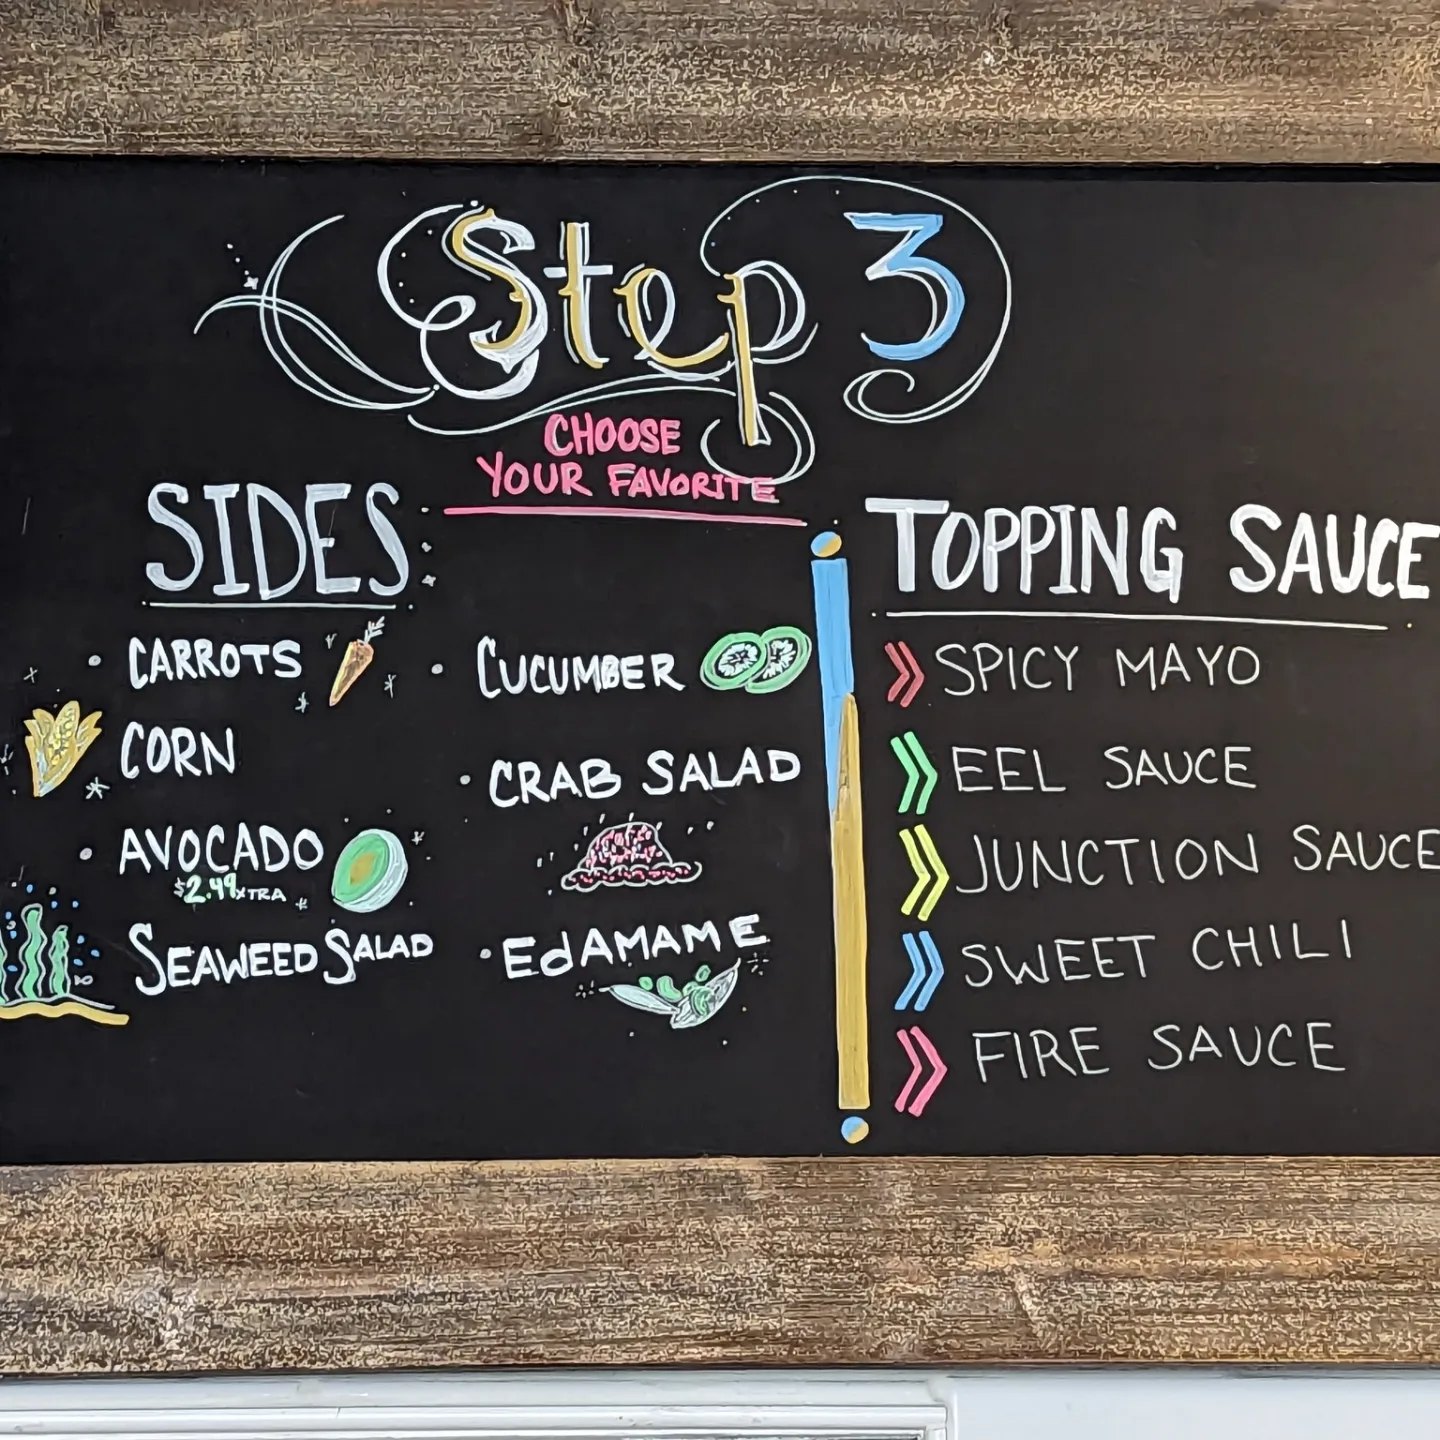 Step 3
CHOOSE
YOUR FAVORITE
SIDES
CARROTS
CORN
AVOCADO
$2.49 XTRA
SEAWEED SALAD
CUCUMBER
CRAB SALAD
EdAMAME
TOPPING SAUCE
SPICY MAYO
EEL SAUCE
JUNCTION SAUCE
SWEET CHILI
FIRE SAUCE